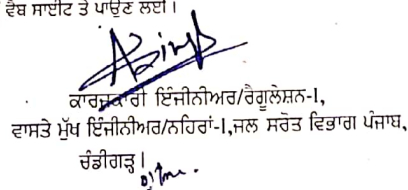 ਵੈਬ ਸਾਈਟ ਤੇ ਪਾਉਣ ਲਈ।
ਕਾਰਜਕਾਰੀ ਇੰਜੀਨੀਅਰ/ਰੈਗੂਲੇਸ਼ਨ-I,
ਵਾਸਤੇ ਮੁੱਖ ਇੰਜੀਨੀਅਰ/ਨਹਿਰਾਂ-I,ਜਲ ਸਰੋਤ ਵਿਭਾਗ ਪੰਜਾਬ,
ਚੰਡੀਗੜ੍ਹ।